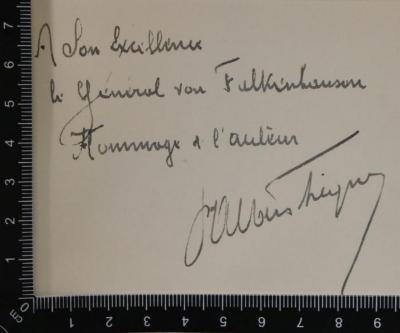 A Son Excellence
le Général von Falkenhausen
Hommage d l'auteur
7
6
5
4
3
2
1
0
cm
1
2
3
4
5
6
7
8
9